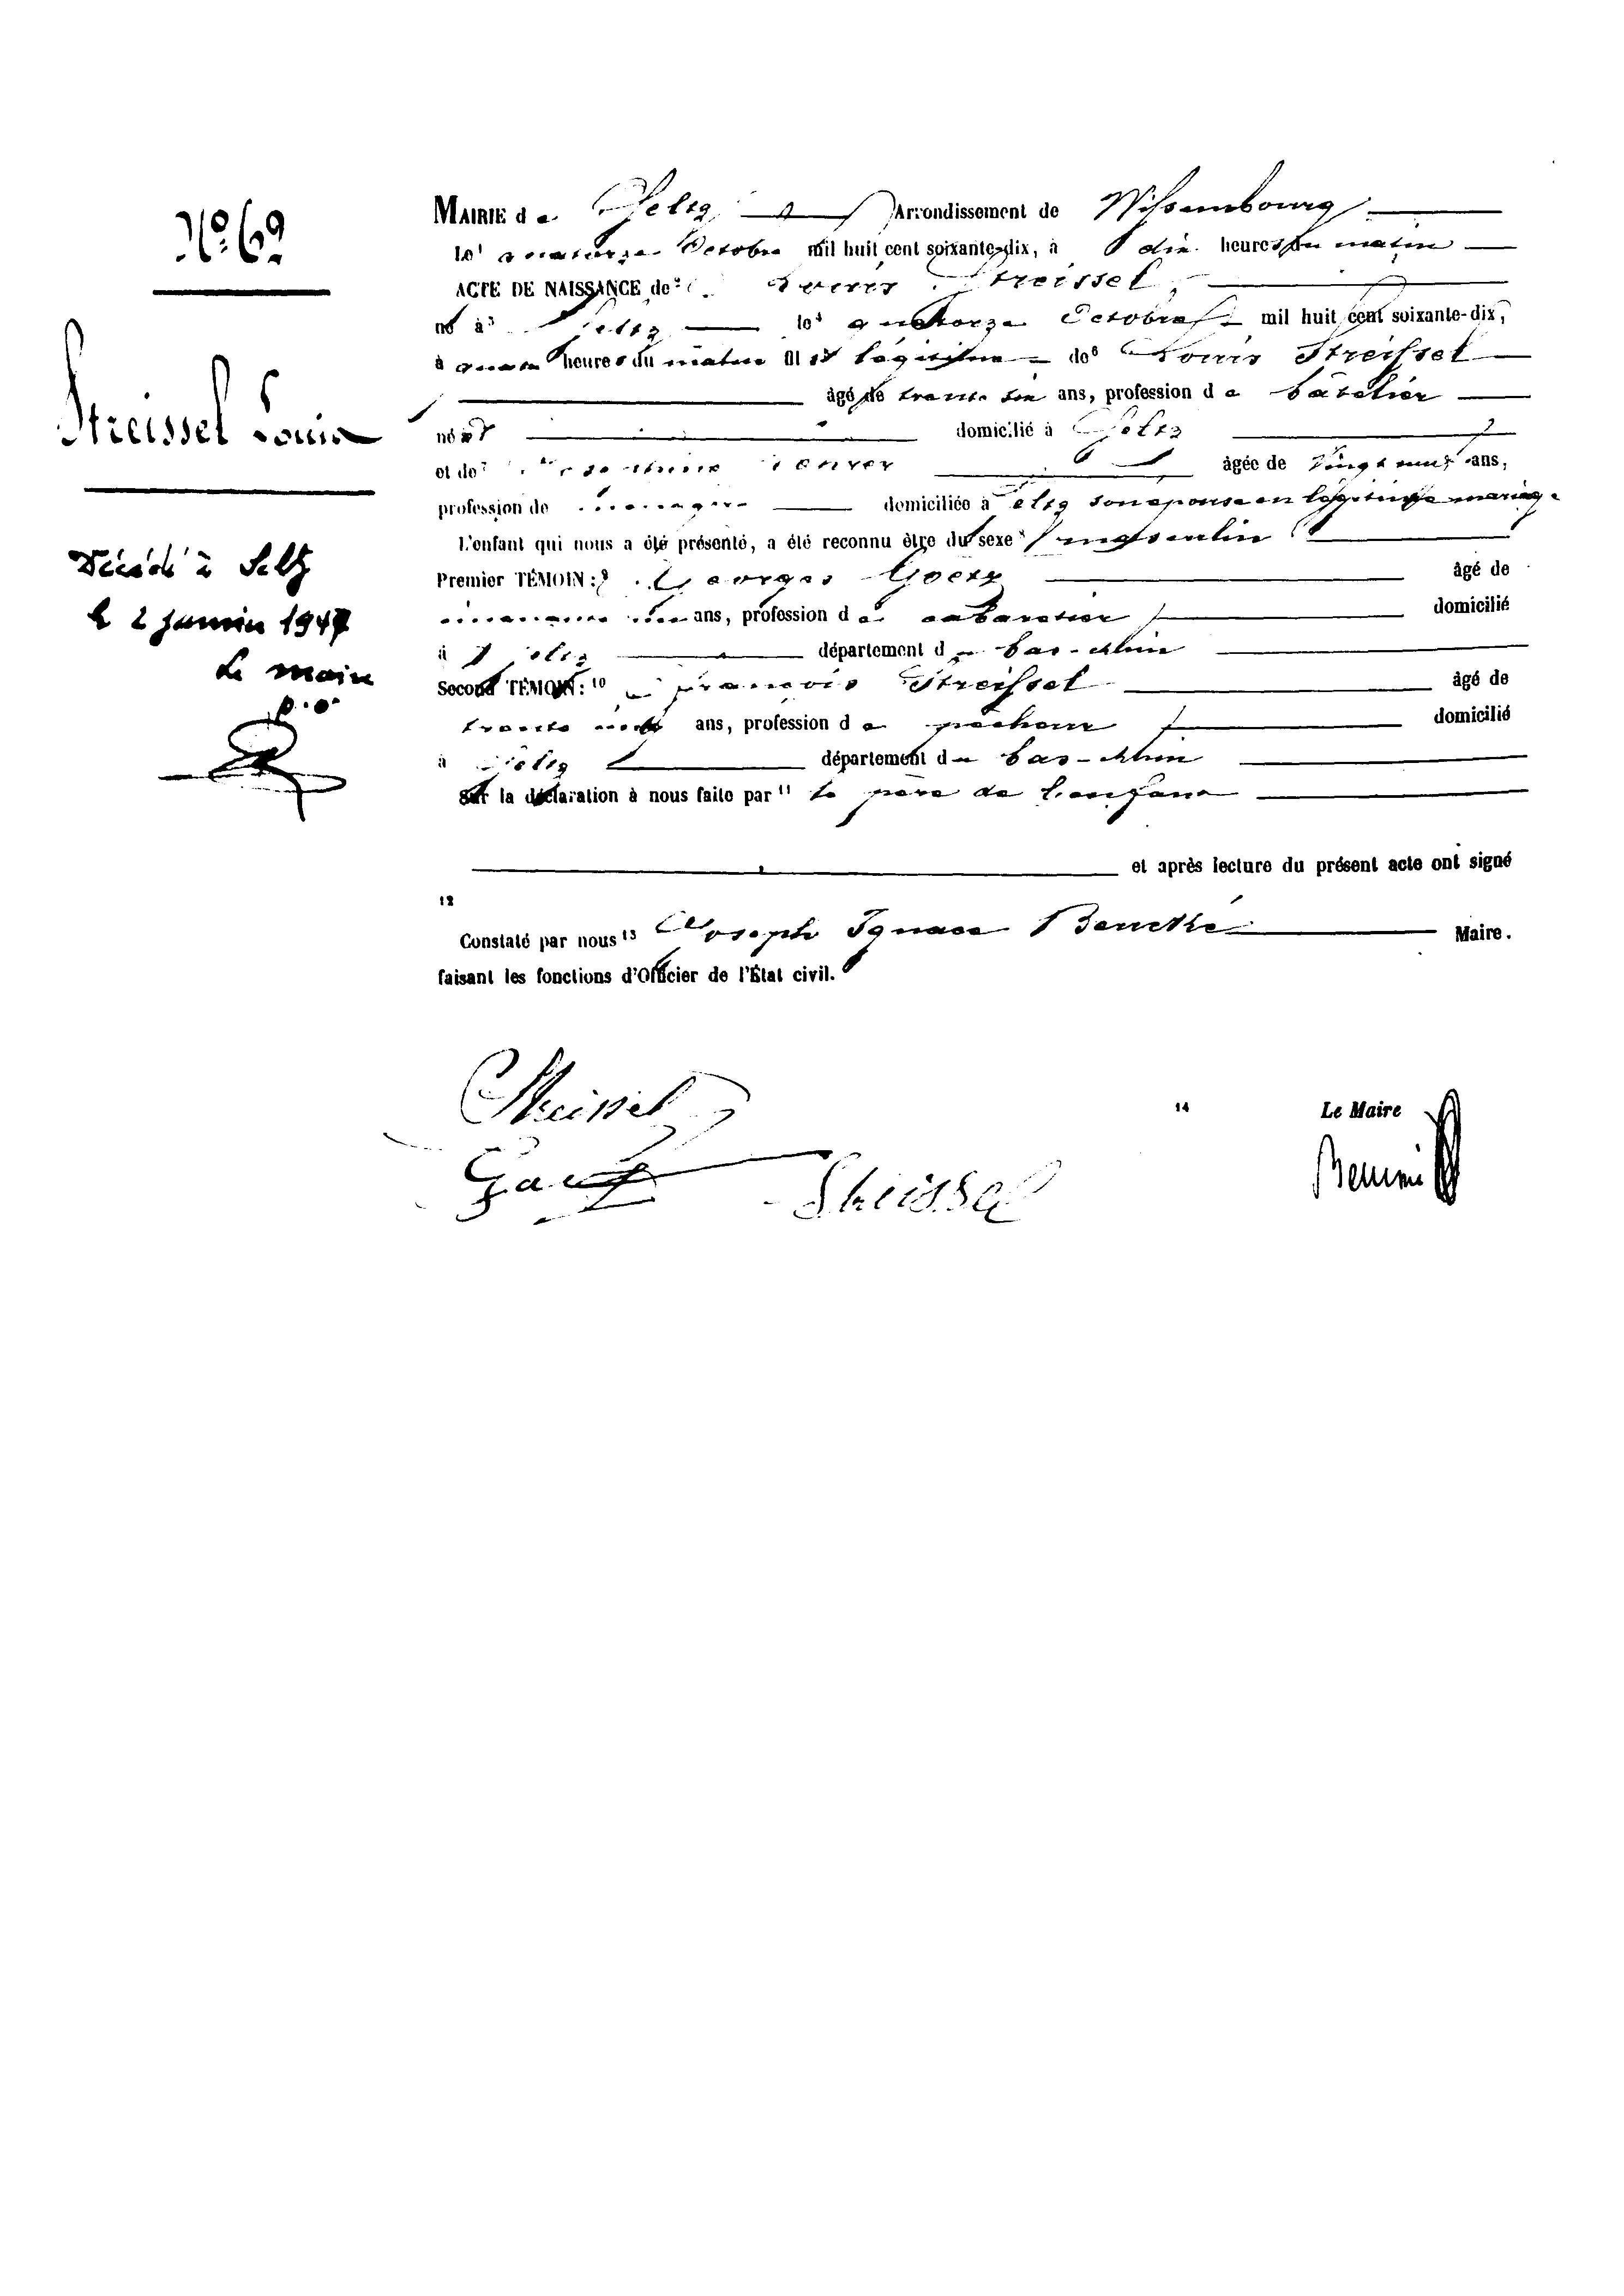 N° 62
Streissel Louis
Décédé à Seltz
le 2 janvier 1947
Le maire
p.o.
MAIRIE de Seltz Arrondissement de Wissembourg
le¹ quatorze Octobre mil huit cent soixante-dix, à dix heures du matin
ACTE DE NAISSANCE de² Louis Streissel
né à³ Seltz le⁴ quatorze Octobre mil huit cent soixante-dix,
à heures du matin fils légitime de⁶ Louis Streissel
âgé de trente ans, profession de bâtelier
né à domicilié à Seltz
et de⁷ âgée de vingt ans,
profession de domiciliée à Seltz son épouse en légitime mariage
L'enfant qui nous a été présenté, a été reconnu être du sexe⁸ masculin
Premier TÉMOIN:⁹ Georges Goetz âgé de
ans, profession de cabaretier domicilié
à Seltz département du bas-Rhin
Second TÉMOIN:¹⁰ François Streissel âgé de
trente ans, profession de pêcheur domicilié
à Seltz département du bas-Rhin
Sur la déclaration à nous faite par¹¹ le père de l'enfant
et après lecture du présent acte ont signé
12
Constaté par nous¹³ Joseph Ignace Maire.
faisant les fonctions d'Officier de l'État civil.
Streissel
14 Le Maire
Streissel